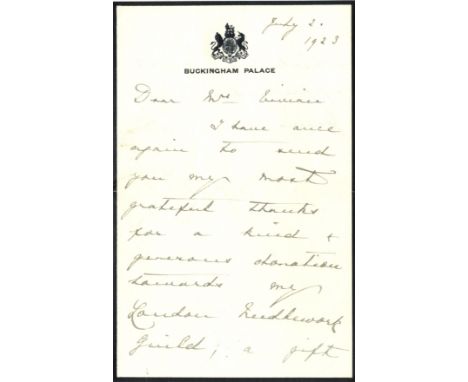 July 2.
1923
BUCKINGHAM PALACE
Dear Mrs
I have once
again to send
you my most
grateful thanks
for a kind &
generous donation
towards my
London Needlework
Guild, a gift